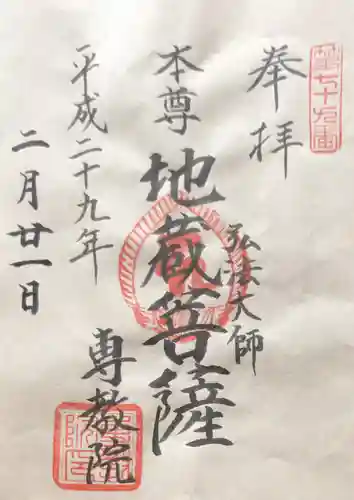 第七十九番
奉拝
弘法大師
本尊
地蔵菩薩
平成二十九年
二月廿一日
専教院